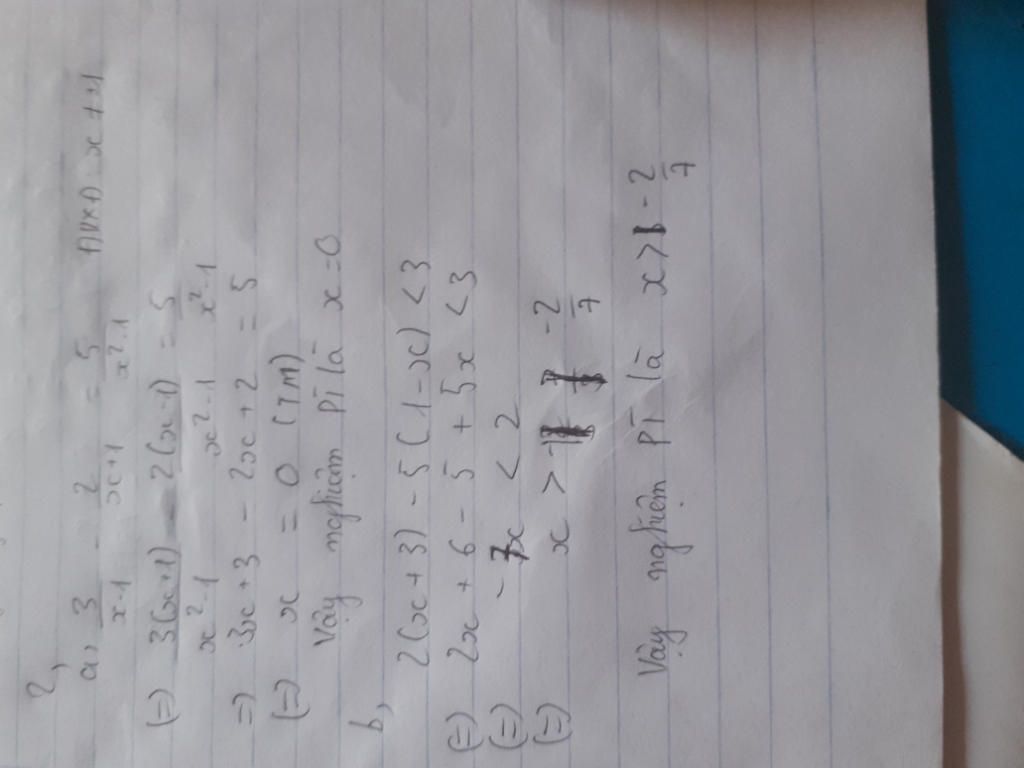 2,
a, 3/(x-1) - 2/(x+1) = 5/(x²-1) ĐKXĐ: x ≠ ±1
(=) 3(x+1)/(x²-1) - 2(x-1)/(x²-1) = 5/(x²-1)
=) 3x+3 - 2x+2 = 5
(=) x = 0 (TM)
Vậy nghiệm PT là x=0
b,
2(x+3) - 5(1-x) < 3
(=) 2x + 6 - 5 + 5x < 3
(=) -7x < 2
(=) x > -2/7
Vậy nghiệm PT là x > -2/7